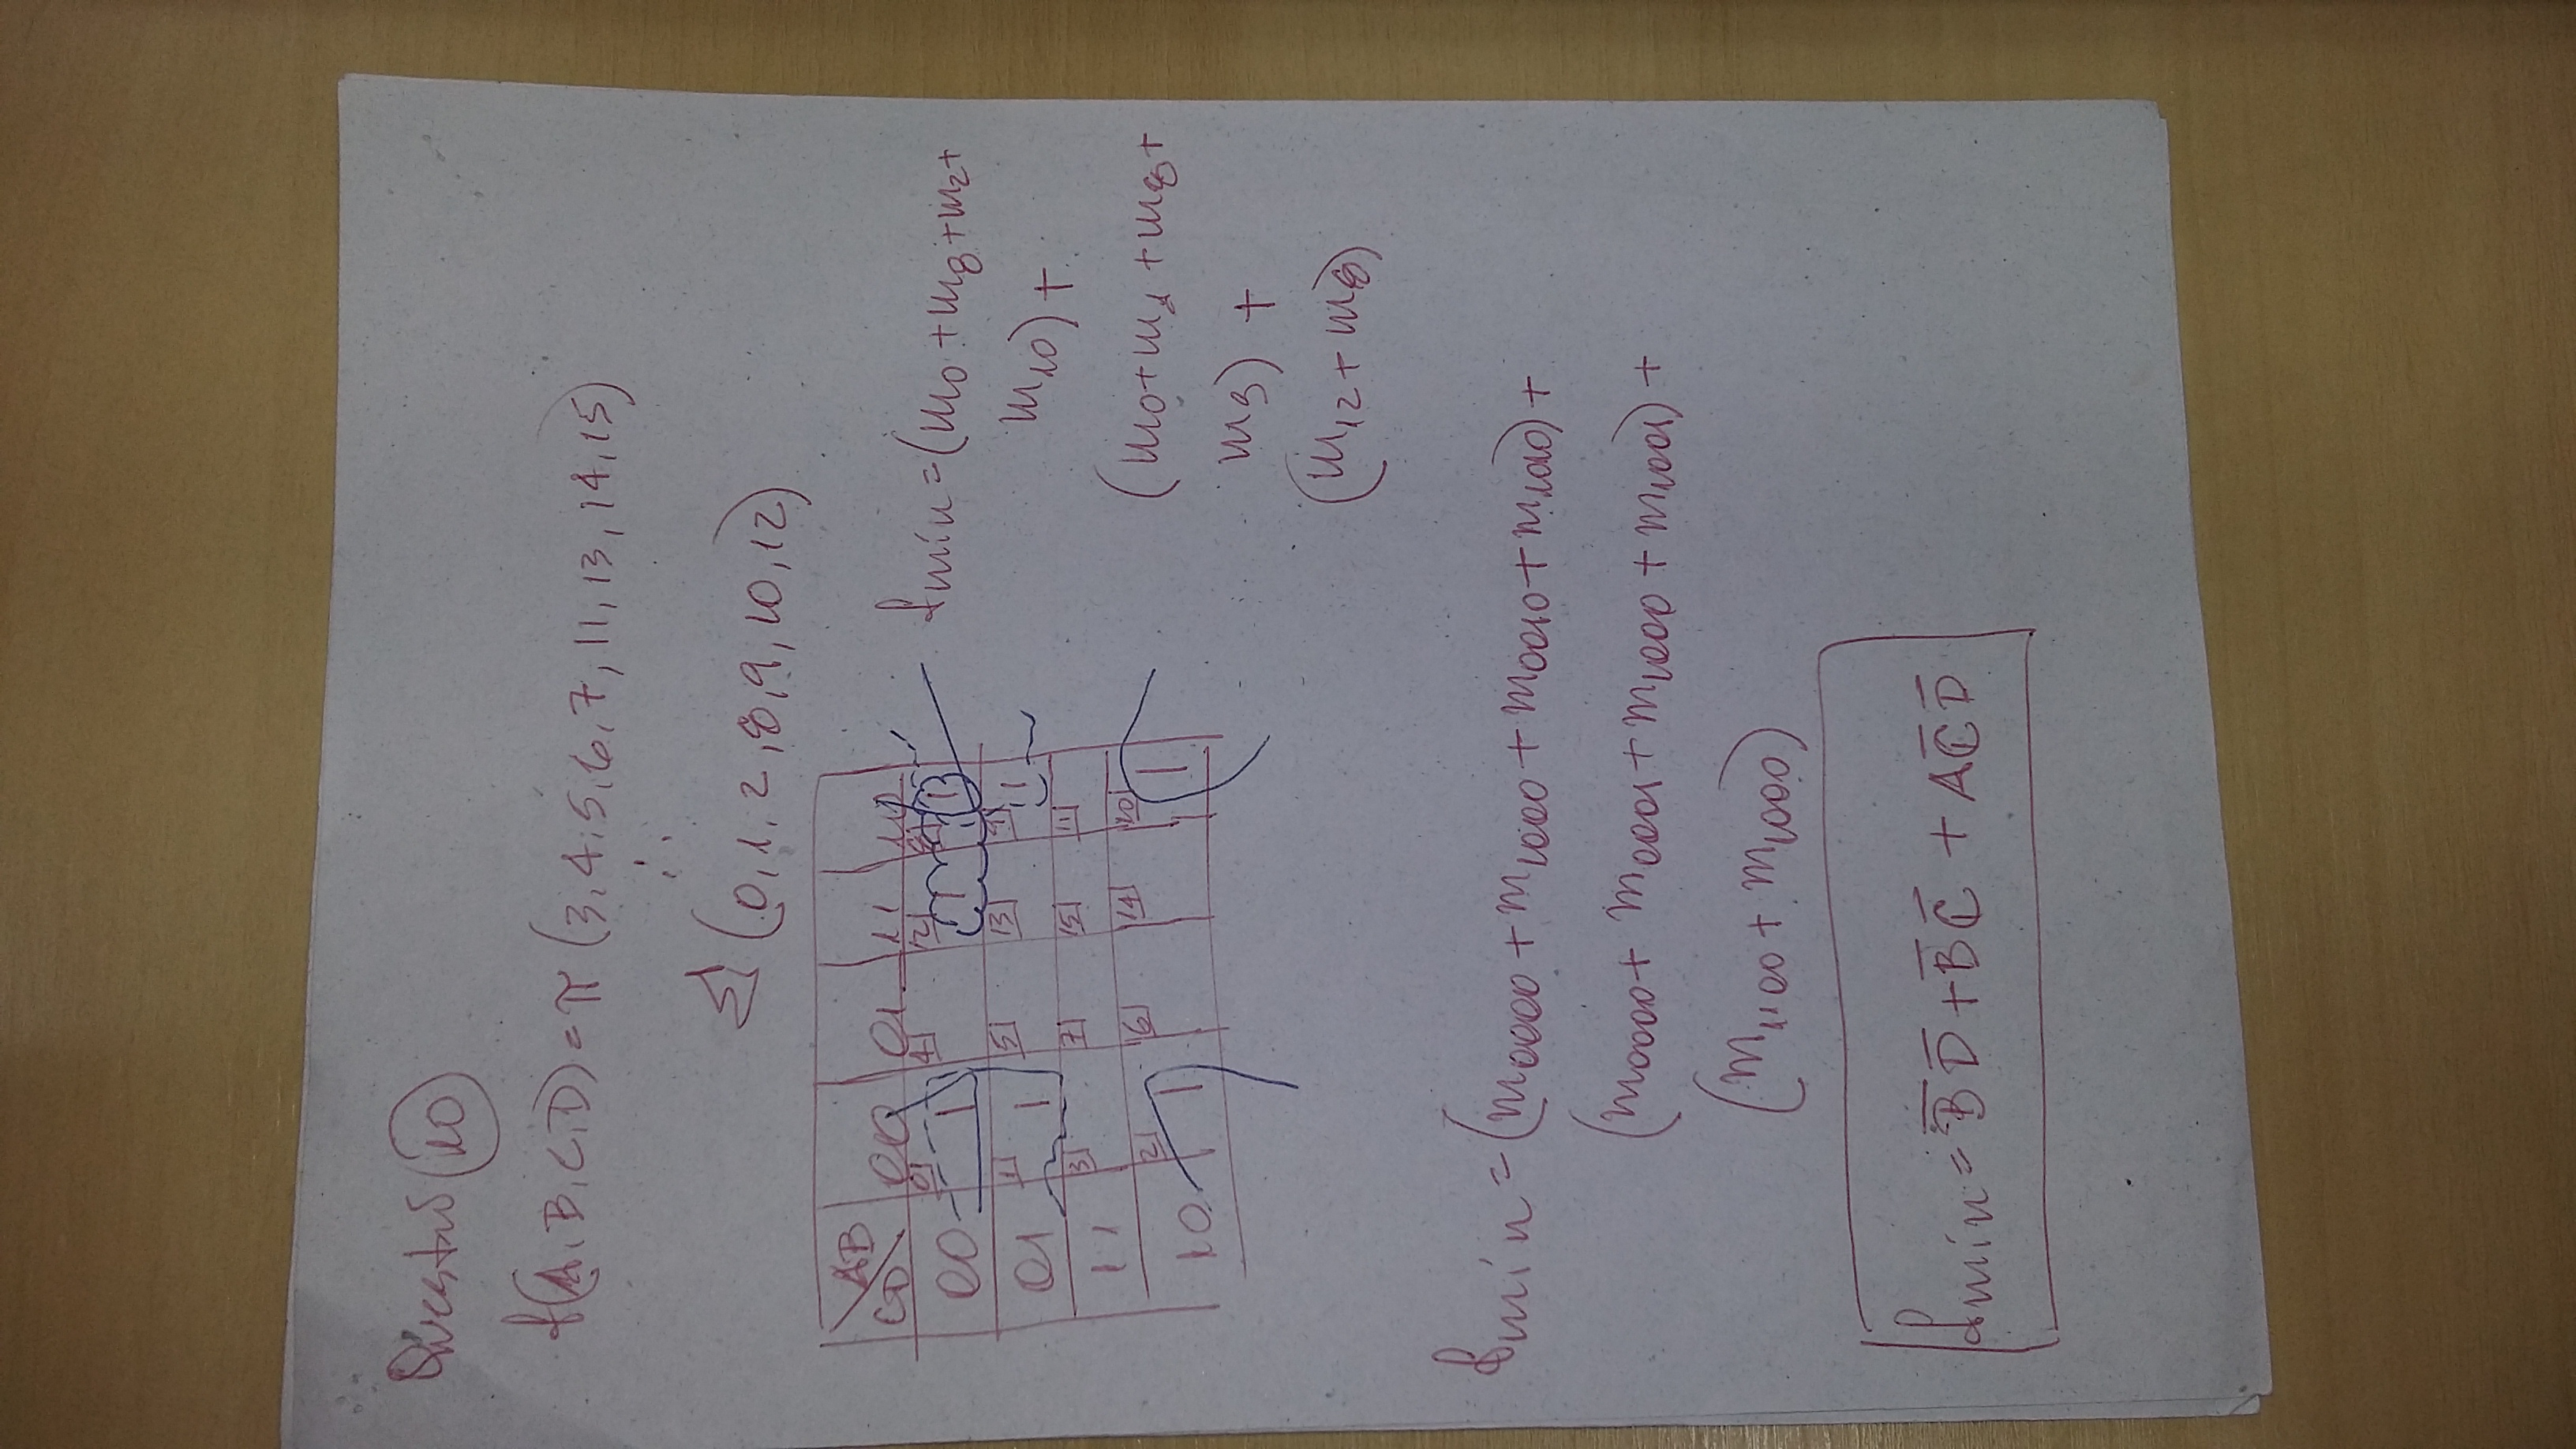 Questão 10
f(A,B,C,D) = π (3,4,5,6,7,11,13,14,15)
∴
Σ (0,1,2,8,9,10,12)
AB
CD 00 01 11 10
00 0 1 4 12 1 8 1
01 1 1 5 13 9 1
11 3 7 15 11
10 2 1 6 14 10 1
fmín = (m0 + m8 + m2 +
m10) +
(m0 + m1 + m8 +
m9) +
(m12 + m8)
fmín = (m0000 + m1000 + m0010 + m1010) +
(m0000 + m0001 + m1000 + m1001) +
(m1100 + m1000)
fmín = B̅ D̅ + B̅ C̅ + A C̅ D̅